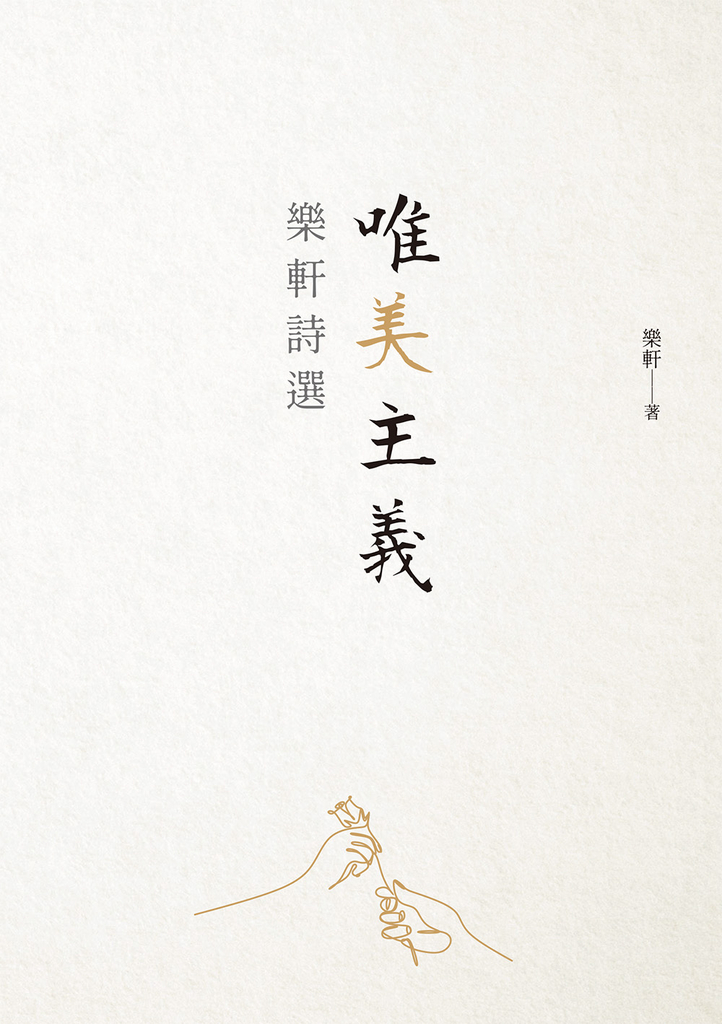 樂軒──著
唯美主義
樂軒詩選